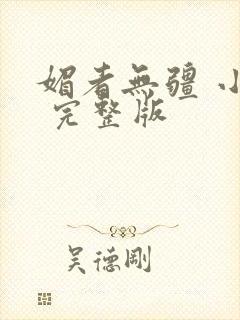 媚者無疆 小
完整版
吴德剛